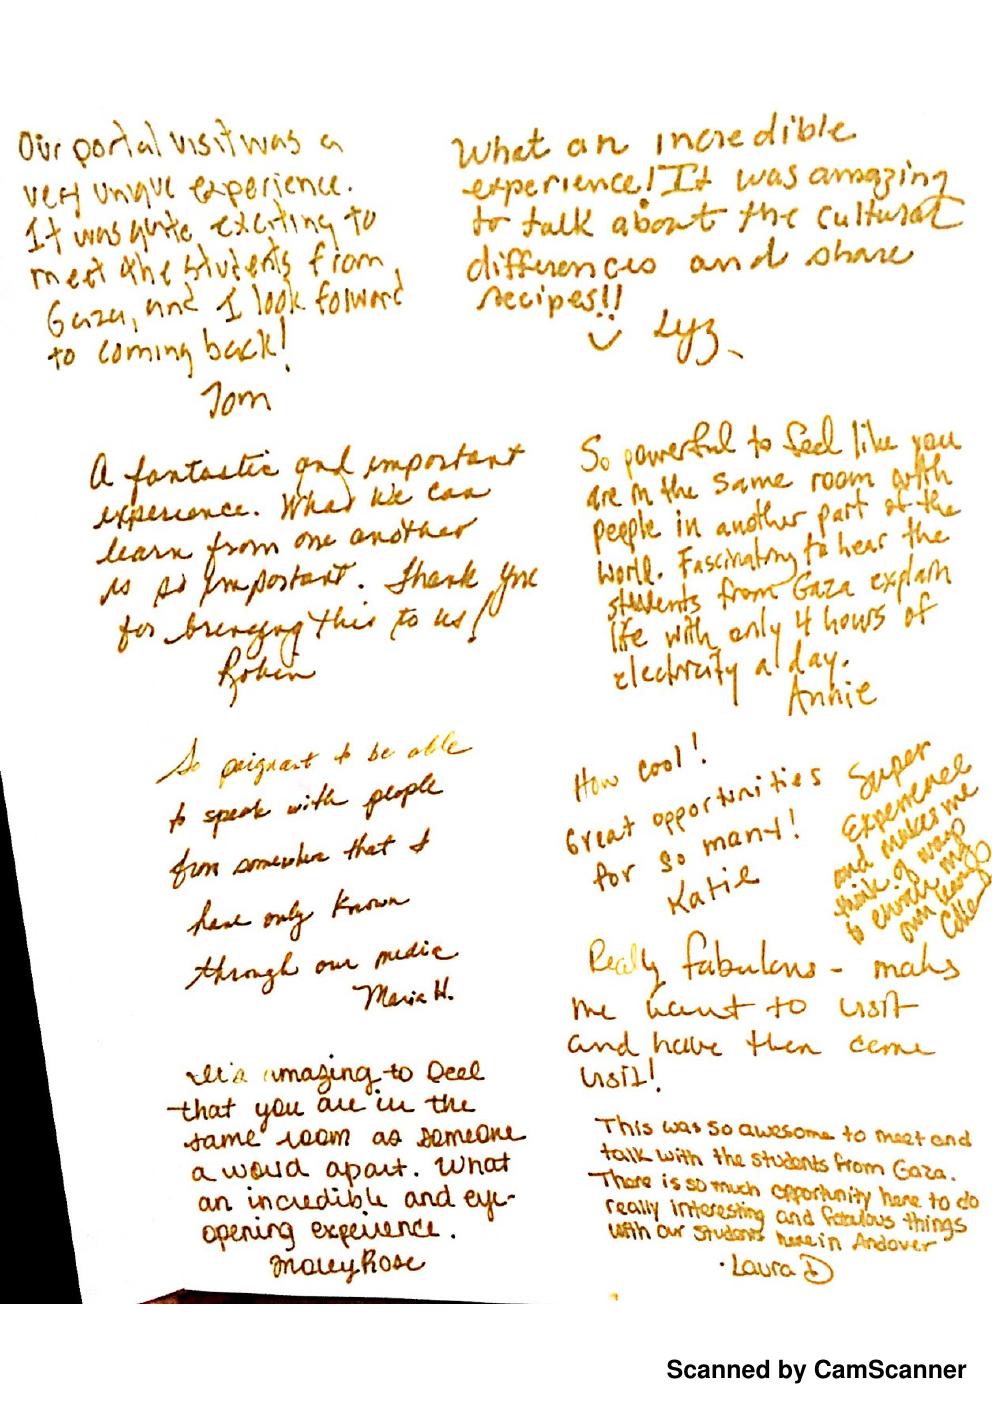 Our portal visit was a
very unique experience.
It was quite exciting to
meet the students from
Gaza, and I look forward
to coming back!
Tom
What an incredible
experience! It was amazing
to talk about the cultural
differences and share
recipes!!
Lyz
A fantastic and important
experience. What we can
learn from one another
is so important. Thank you
for bringing this to us!
Robin
So powerful to feel like you
are in the same room with
people in another part of the
world. Fascinating to hear the
students from Gaza explain
life with only 4 hours of
electricity a day.
Annie
So poignant to be able
to speak with people
from somewhere that I
have only known
through our media
Maria H.
How cool!
Great opportunities
for so many!
Katie
Super
Experience
and makes me
think of ways
to enrich my
own
Really fabulous - makes
me want to visit
and have them come
visit!
It's amazing to feel
that you are in the
same room as someone
a world apart. What
an incredible and eye-
opening experience.
MaryRose
This was so awesome to meet and
talk with the students from Gaza.
There is so much opportunity here to do
really interesting and fabulous things
with our students here in Andover
·Laura D
Scanned by CamScanner